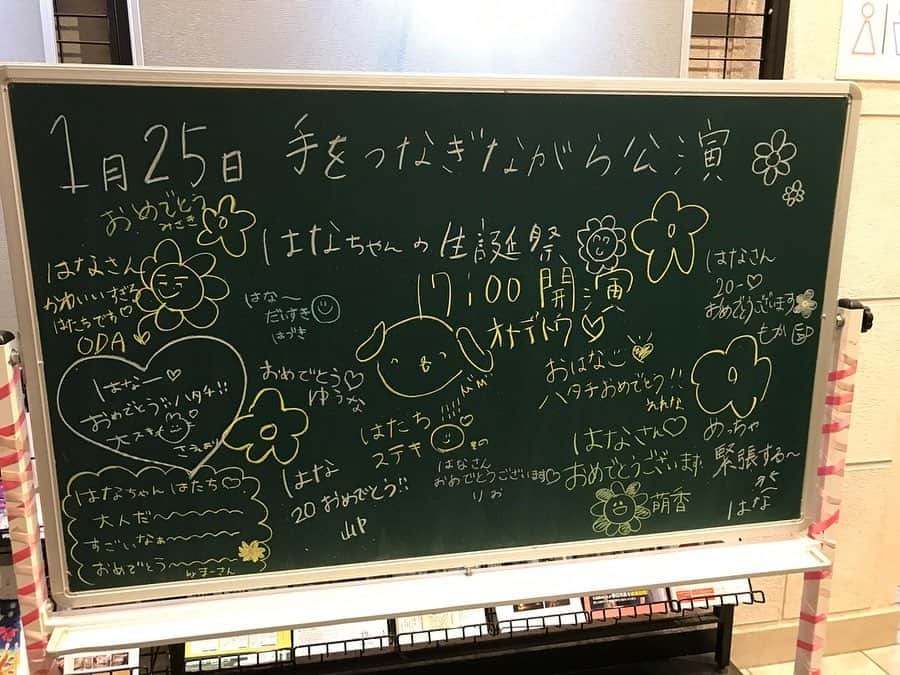 1月25日 手をつなぎながら公演
おめでとう
みさき
はなちゃんの生誕祭
17:00開演
はなさん
かわいいすぎる
はたちです♡
ODA
はな〜
だいすき
はづき
オメデトウ♡
はなさん
20-♡
おめでとうございます
もか
はなー♡
おめでとう!!ハタチ!!
大スキ
おめでとう♡
ゆうな
おはなじ
ハタチおめでとう!!
れれな
はたち!!!!
ステキ
はなさん
おめでとうございます♡
りお
はなさん♡
おめでとうございます
萌香
めっちゃ
緊張する〜
はな
はな
20おめでとう!!
はなちゃんはたち♡
大人だ〜
すごいなぁ〜
おめでとう〜
by まーさん